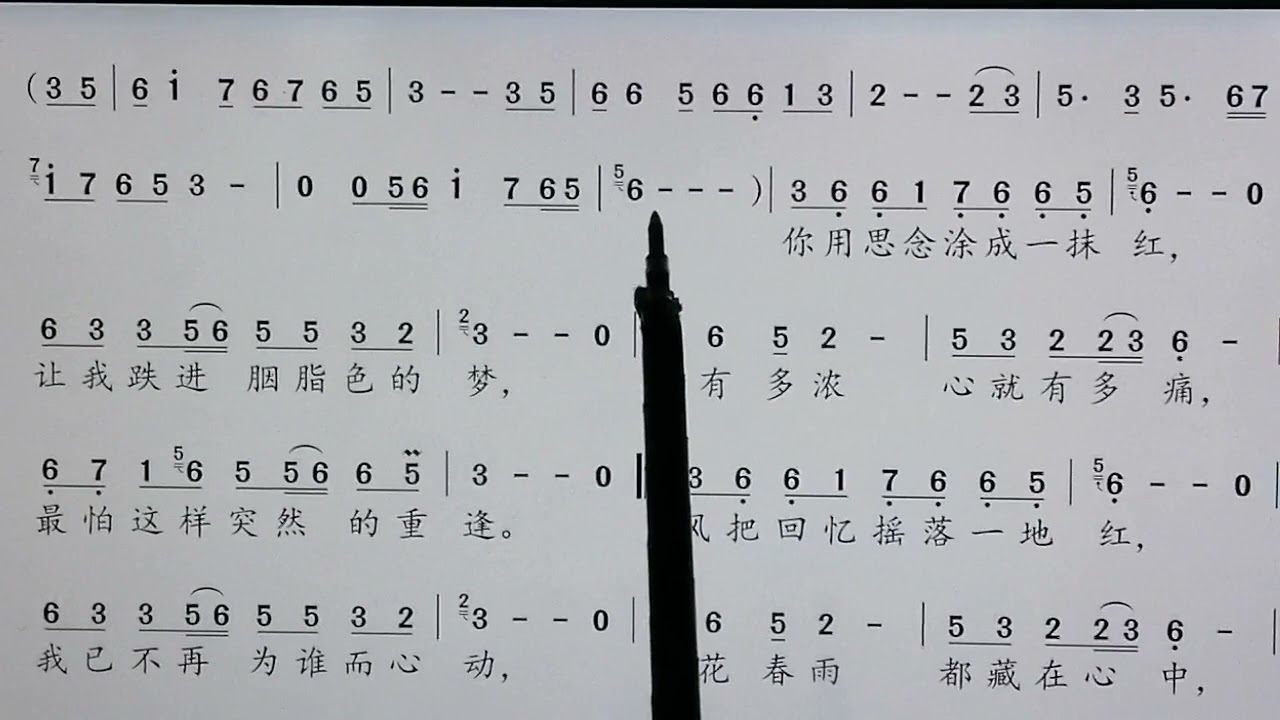 ( 3 5 | 6 i 7 6 7 6 5 | 3 - - 3 5 | 6 6 5 6 6 1 3 | 2 - - 2 3 | 5· 3 5· 6 7
7 i 7 6 5 3 - | 0 0 5 6 i 7 6 5 | 5 6 - - - ) | 3 6 6 1 7 6 6 5 | 5 6 - - 0
你用思念涂成一抹 红，
6 3 3 5 6 5 5 3 2 | 2 3 - - 0 | 6 5 2 - | 5 3 2 2 3 6 - |
让我跌进 胭脂色的 梦， 有多浓 心就有多 痛，
6 7 1 5 6 5 5 6 6 5 | 3 - - 0 | 3 6 6 1 7 6 6 5 | 5 6 - - 0 |
最怕这样突然 的重 逢。 风把回忆摇落一地 红，
6 3 3 5 6 5 5 3 2 | 2 3 - - 0 | 6 5 2 - | 5 3 2 2 3 6 - |
我已不再 为谁而心 动， 花春雨 都藏在心 中，